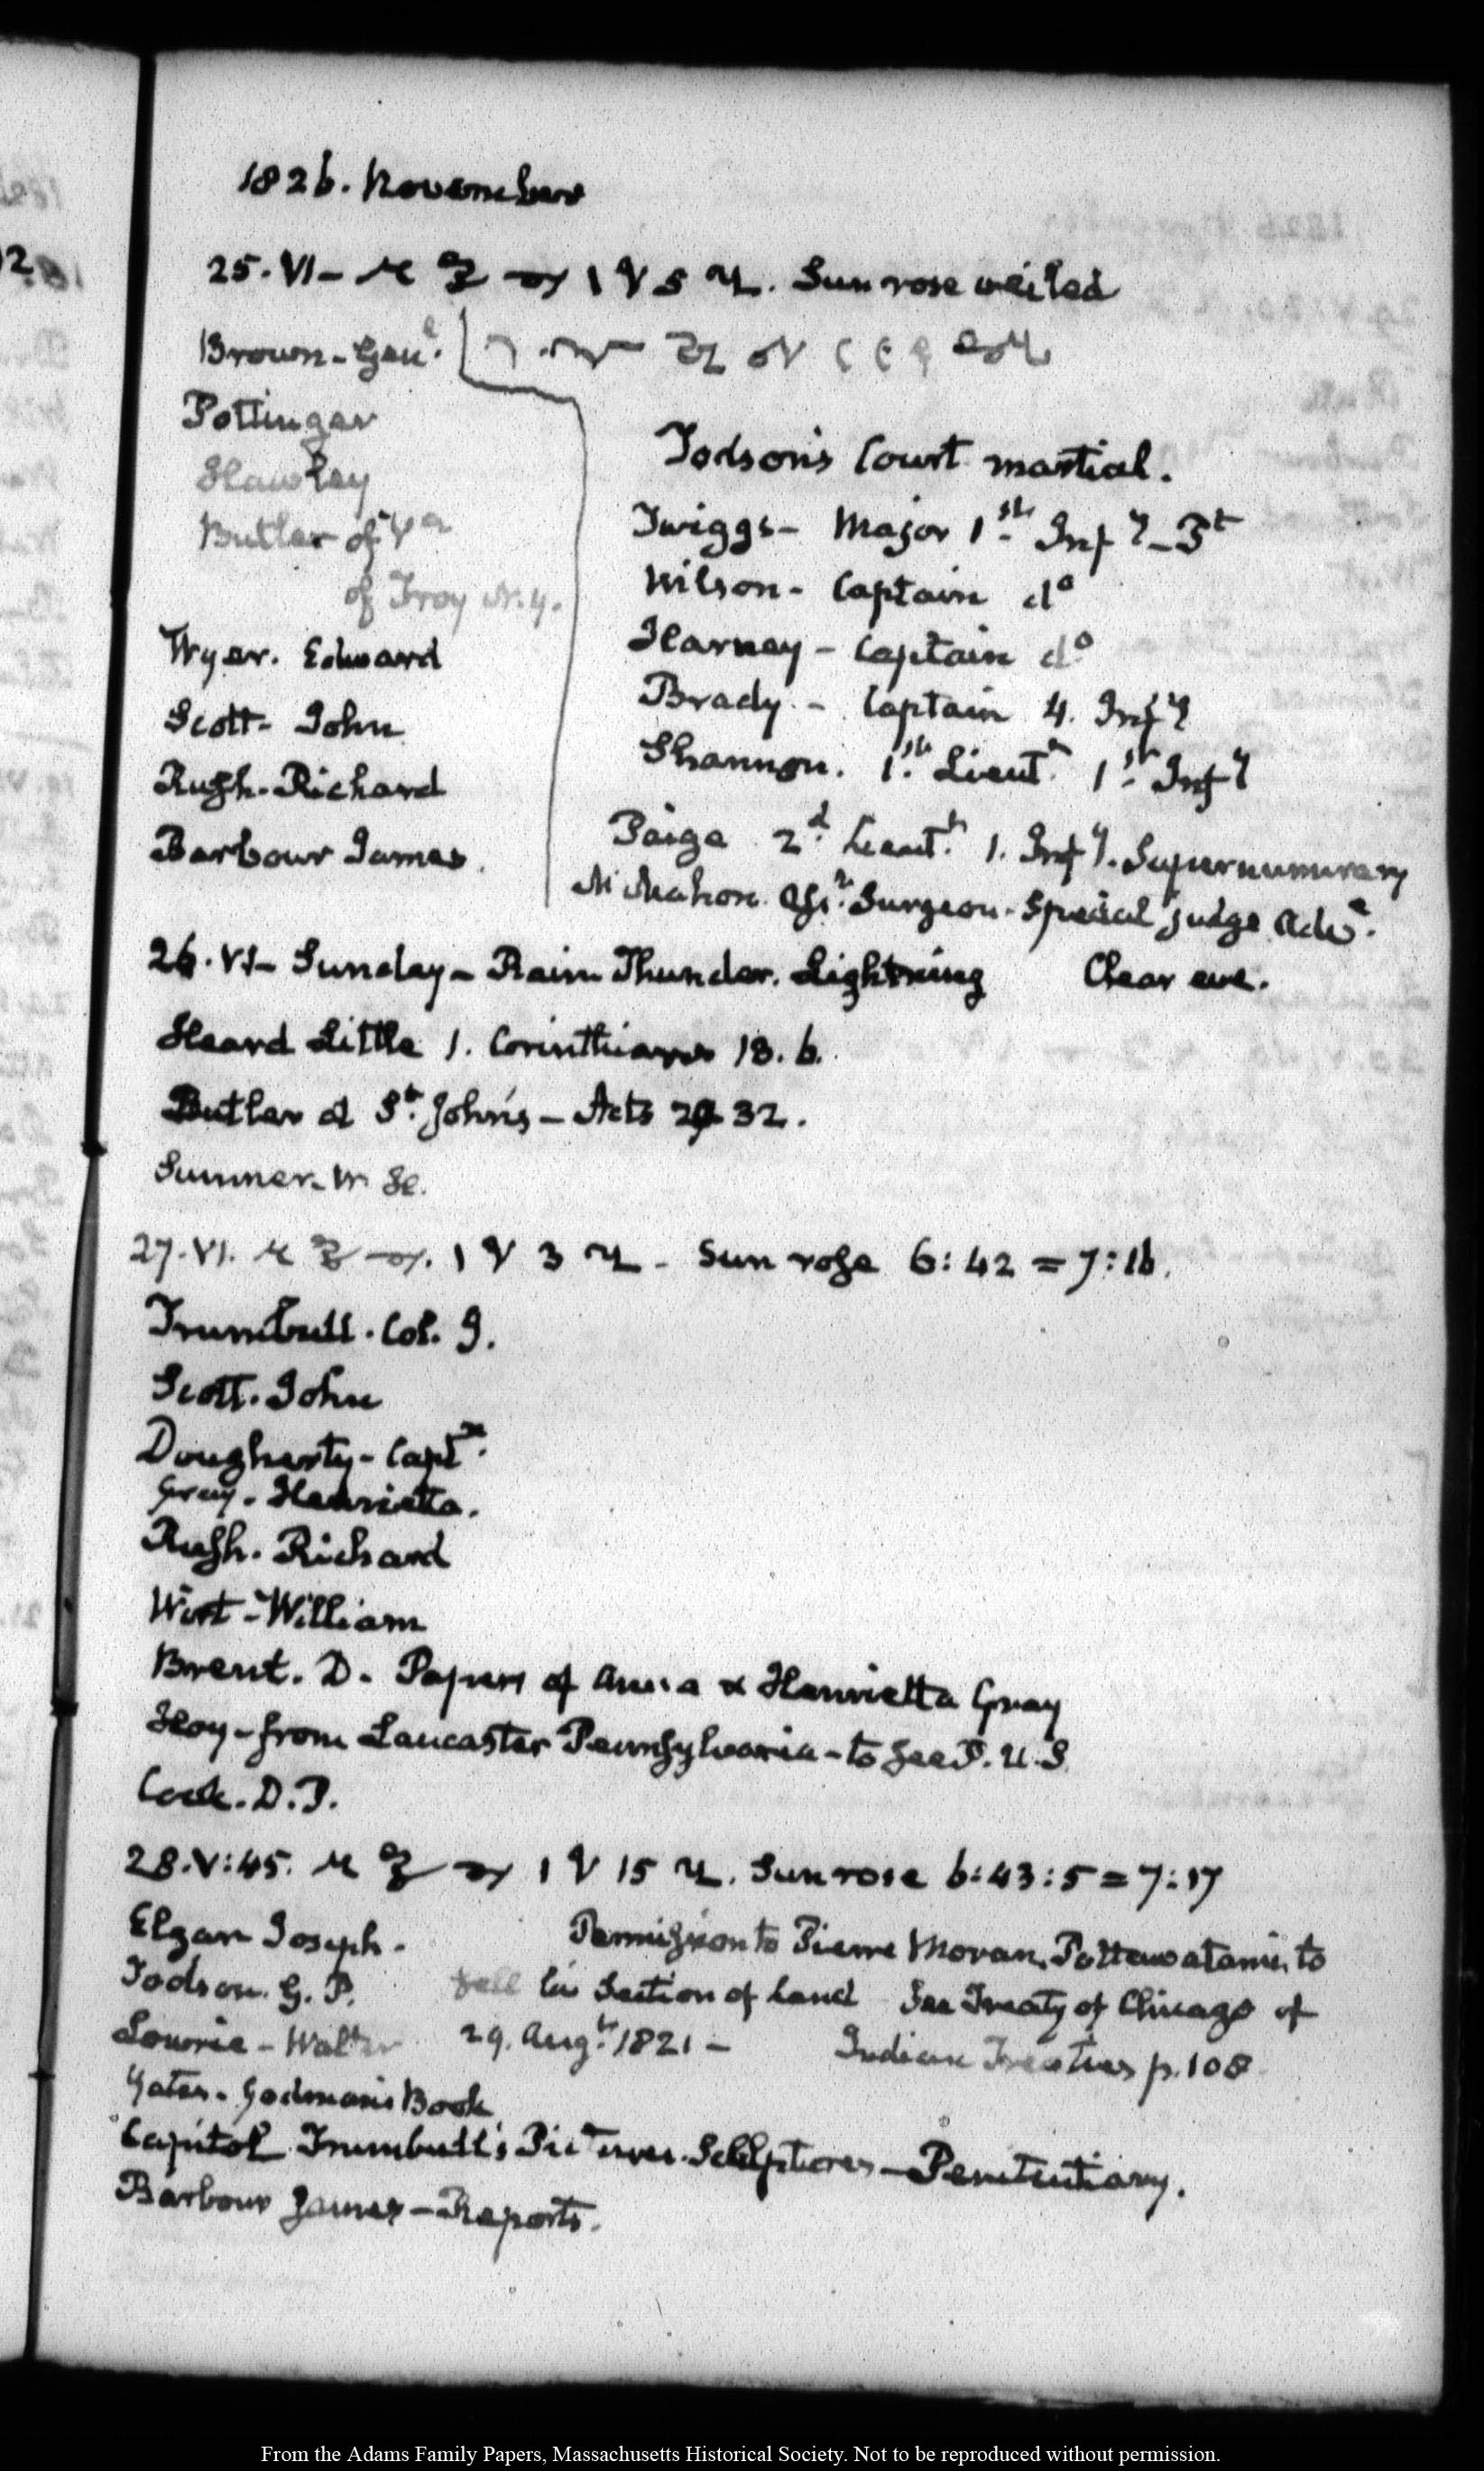 1826. November
25. VI – Sun rose veiled
Brown – Genl.
Pottinger
Hawley
Butler of Va
of Troy N.Y.
Wyer. Edward
Scott – John
Rush – Richard
Barbour James.
Todson's Court martial.
Twiggs – Major 1st Infy – Pt
Wilson – Captain do
Harney – Captain do
Brady – Captain 4. Infy
Shannon. 1st Lieutt 1st Infy
Paige 2d Lieutt. 1. Infy. Supernumerary
McMahon. Asst. Surgeon – Special judge Adve.
26. VI – Sunday – Rain Thunder. Lightning Clear eve.
Heard Little 1. Corinthians 13. 6.
Butler at St. John's – Acts 32.
Sumner – W. H.
27. VI. 1 3 – Sun rose 6:42 = 7:16.
Trumbull. Col. J.
Scott. John
Dougherty – Captn.
Gray. Henrietta.
Rush. Richard
Wirt – William
Brent. D. Papers of Anna & Henrietta Gray
Hoy – from Lancaster Pennsylvania – to see P. U. S
Cook. D. P.
28. V:45. 1 15 Sun rose 6:43:5 = 7:17
Elgar Joseph. Permission to Pierre Moran, Pottawatamie, to
Todson. G. P. sell his Section of Land See Treaty of Chicago of
Lowrie – Walter 29. Augt. 1821 – Indian Treaties p. 108
Yates. Godman's Book
Capitol Trumbull's Pictures. Sculptures – Penitentiary.
Barbour James – Reports.
From the Adams Family Papers, Massachusetts Historical Society. Not to be reproduced without permission.